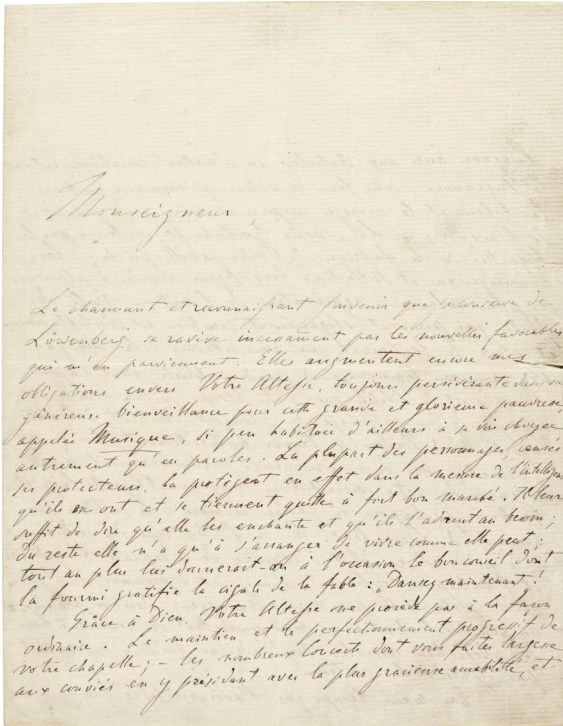 Monseigneur
Le charmant et reconnaissant souvenir que je conserve de
Löwenberg se ravive incessament par les nouvelles favorables
qui m'en parviennent. Elles augmentent encore mes
obligations envers Votre Altesse, toujours persévérante dans sa
généreuse bienveillance pour cette grande et glorieuse pauvresse
appelée Musique, si peu habituée d'ailleurs à se voir choyée
autrement qu'en paroles. La plupart des personnages, censés
ses protecteurs, la protègent en effet dans la mesure de l'intelligence
qu'ils en ont et se tiennent quitte à fort bon marché. Il leur
suffit de dire qu'elle les enchante et qu'ils l'adorent au besoin;
du reste elle n'a qu'à s'arranger de vivre comme elle peut;
tout au plus lui donnerait-on à l'occasion le bon conseil dont
la fourmi gratifie la cigale de la fable: „Dansez maintenant!
Grâce à Dieu, Votre Altesse ne procède pas à la façon
ordinaire. Le maintien et le perfectionnement progressif de
votre chapelle; – les nombreux concerts dont vous faites largesse
aux conviés en y présidant avec la plus gracieuse amabilité, et